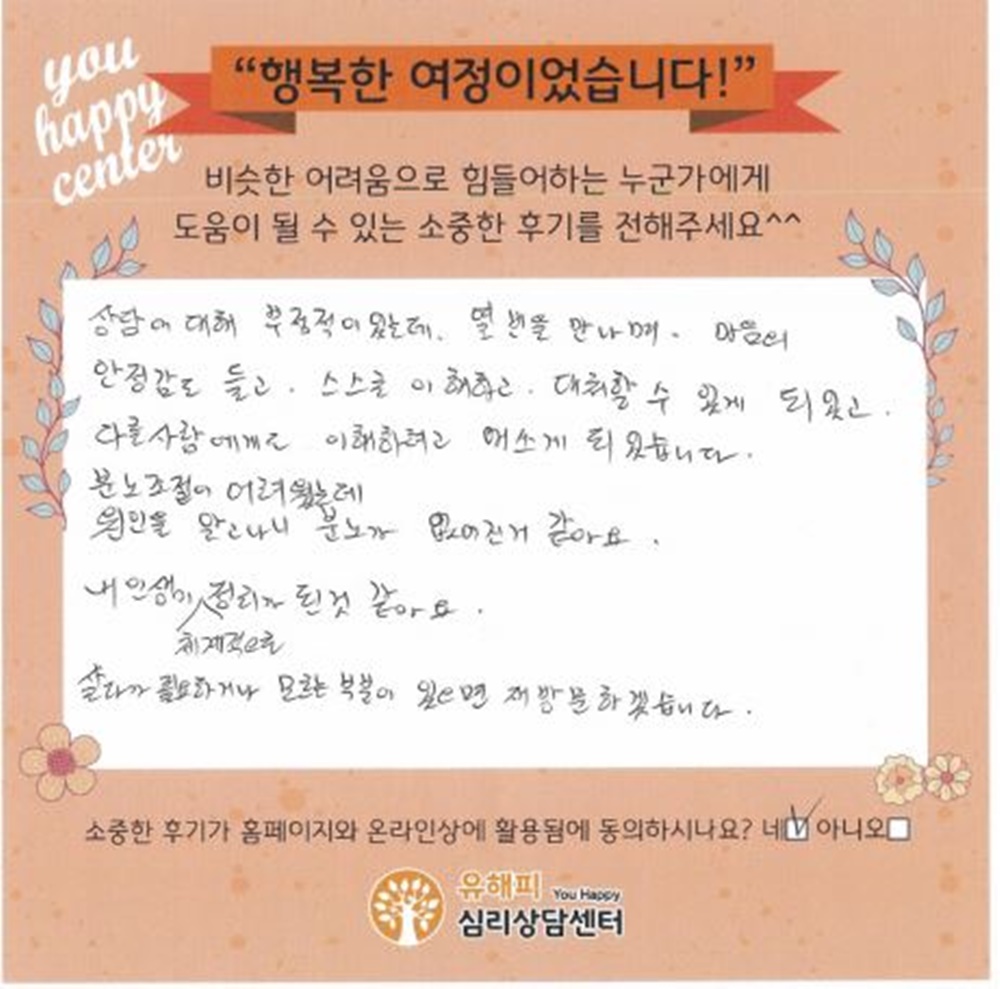 you
happy
center
“행복한 여정이었습니다!”
비슷한 어려움으로 힘들어하는 누군가에게
도움이 될 수 있는 소중한 후기를 전해주세요^^
상담에 대해 부정적이었는데. 열 번을 만나며. 마음의
안정감도 들고. 스스로 이해하고. 대처할 수 있게 되었고.
다른사람에게도 이해하려고 애쓰게 되었습니다.
분노조절이 어려웠는데
원인을 알고나니 분노가 없어진거 같아요.
내 인생이 정리가 된것 같아요.
체계적으로
살다가 필요하거나 모르는 부분이 있으면 재방문하겠습니다.
소중한 후기가 홈페이지와 온라인상에 활용됨에 동의하시나요? 네☑ 아니오☐
유해피 You Happy
심리상담센터